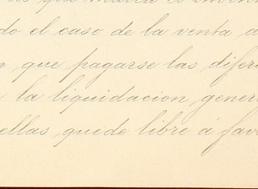 do el caso de la venta a
que pagarse las difer
la liquidacion gener
ellas, quede libre á fav